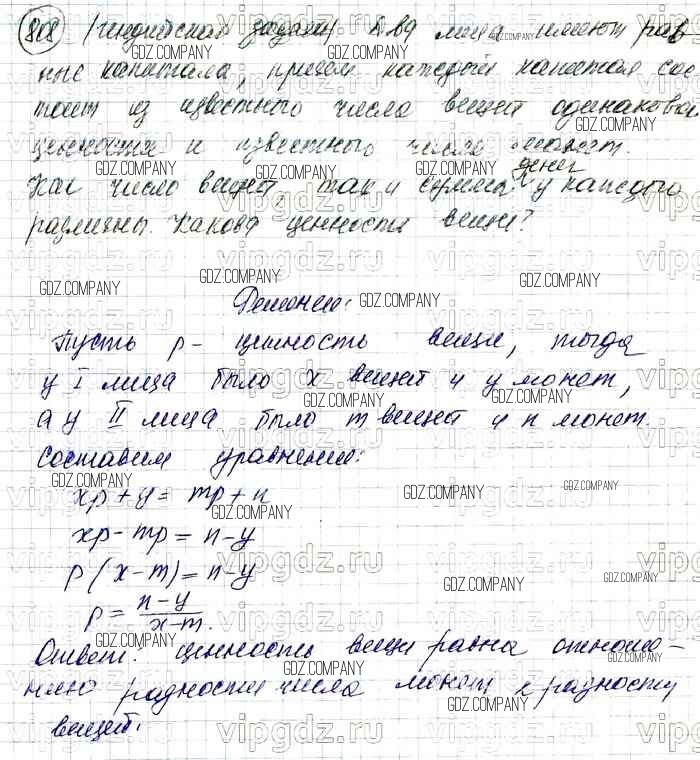 808 (Индийская задача) Два лица имеют рав
ные капитала, причем каждый капитал сос
тоит из известного числа вещей одинаковой
ценности и известного числа монет.
Как число вещей, так и суммы денег у каждого
различны. Какова ценность вещи?
Решение:
Пусть p - ценность вещи, тогда
у I лица было x вещей и y монет,
а у II лица было m вещей и n монет.
Составим уравнение:
xp + y = mp + n
xp - mp = n - y
p (x - m) = n - y
p = n-y / x-m.
Ответ: ценность вещи равна отноше-
нию разности числа монет к разности
вещей.
GDZ.COMPANY
vipgdz.ru